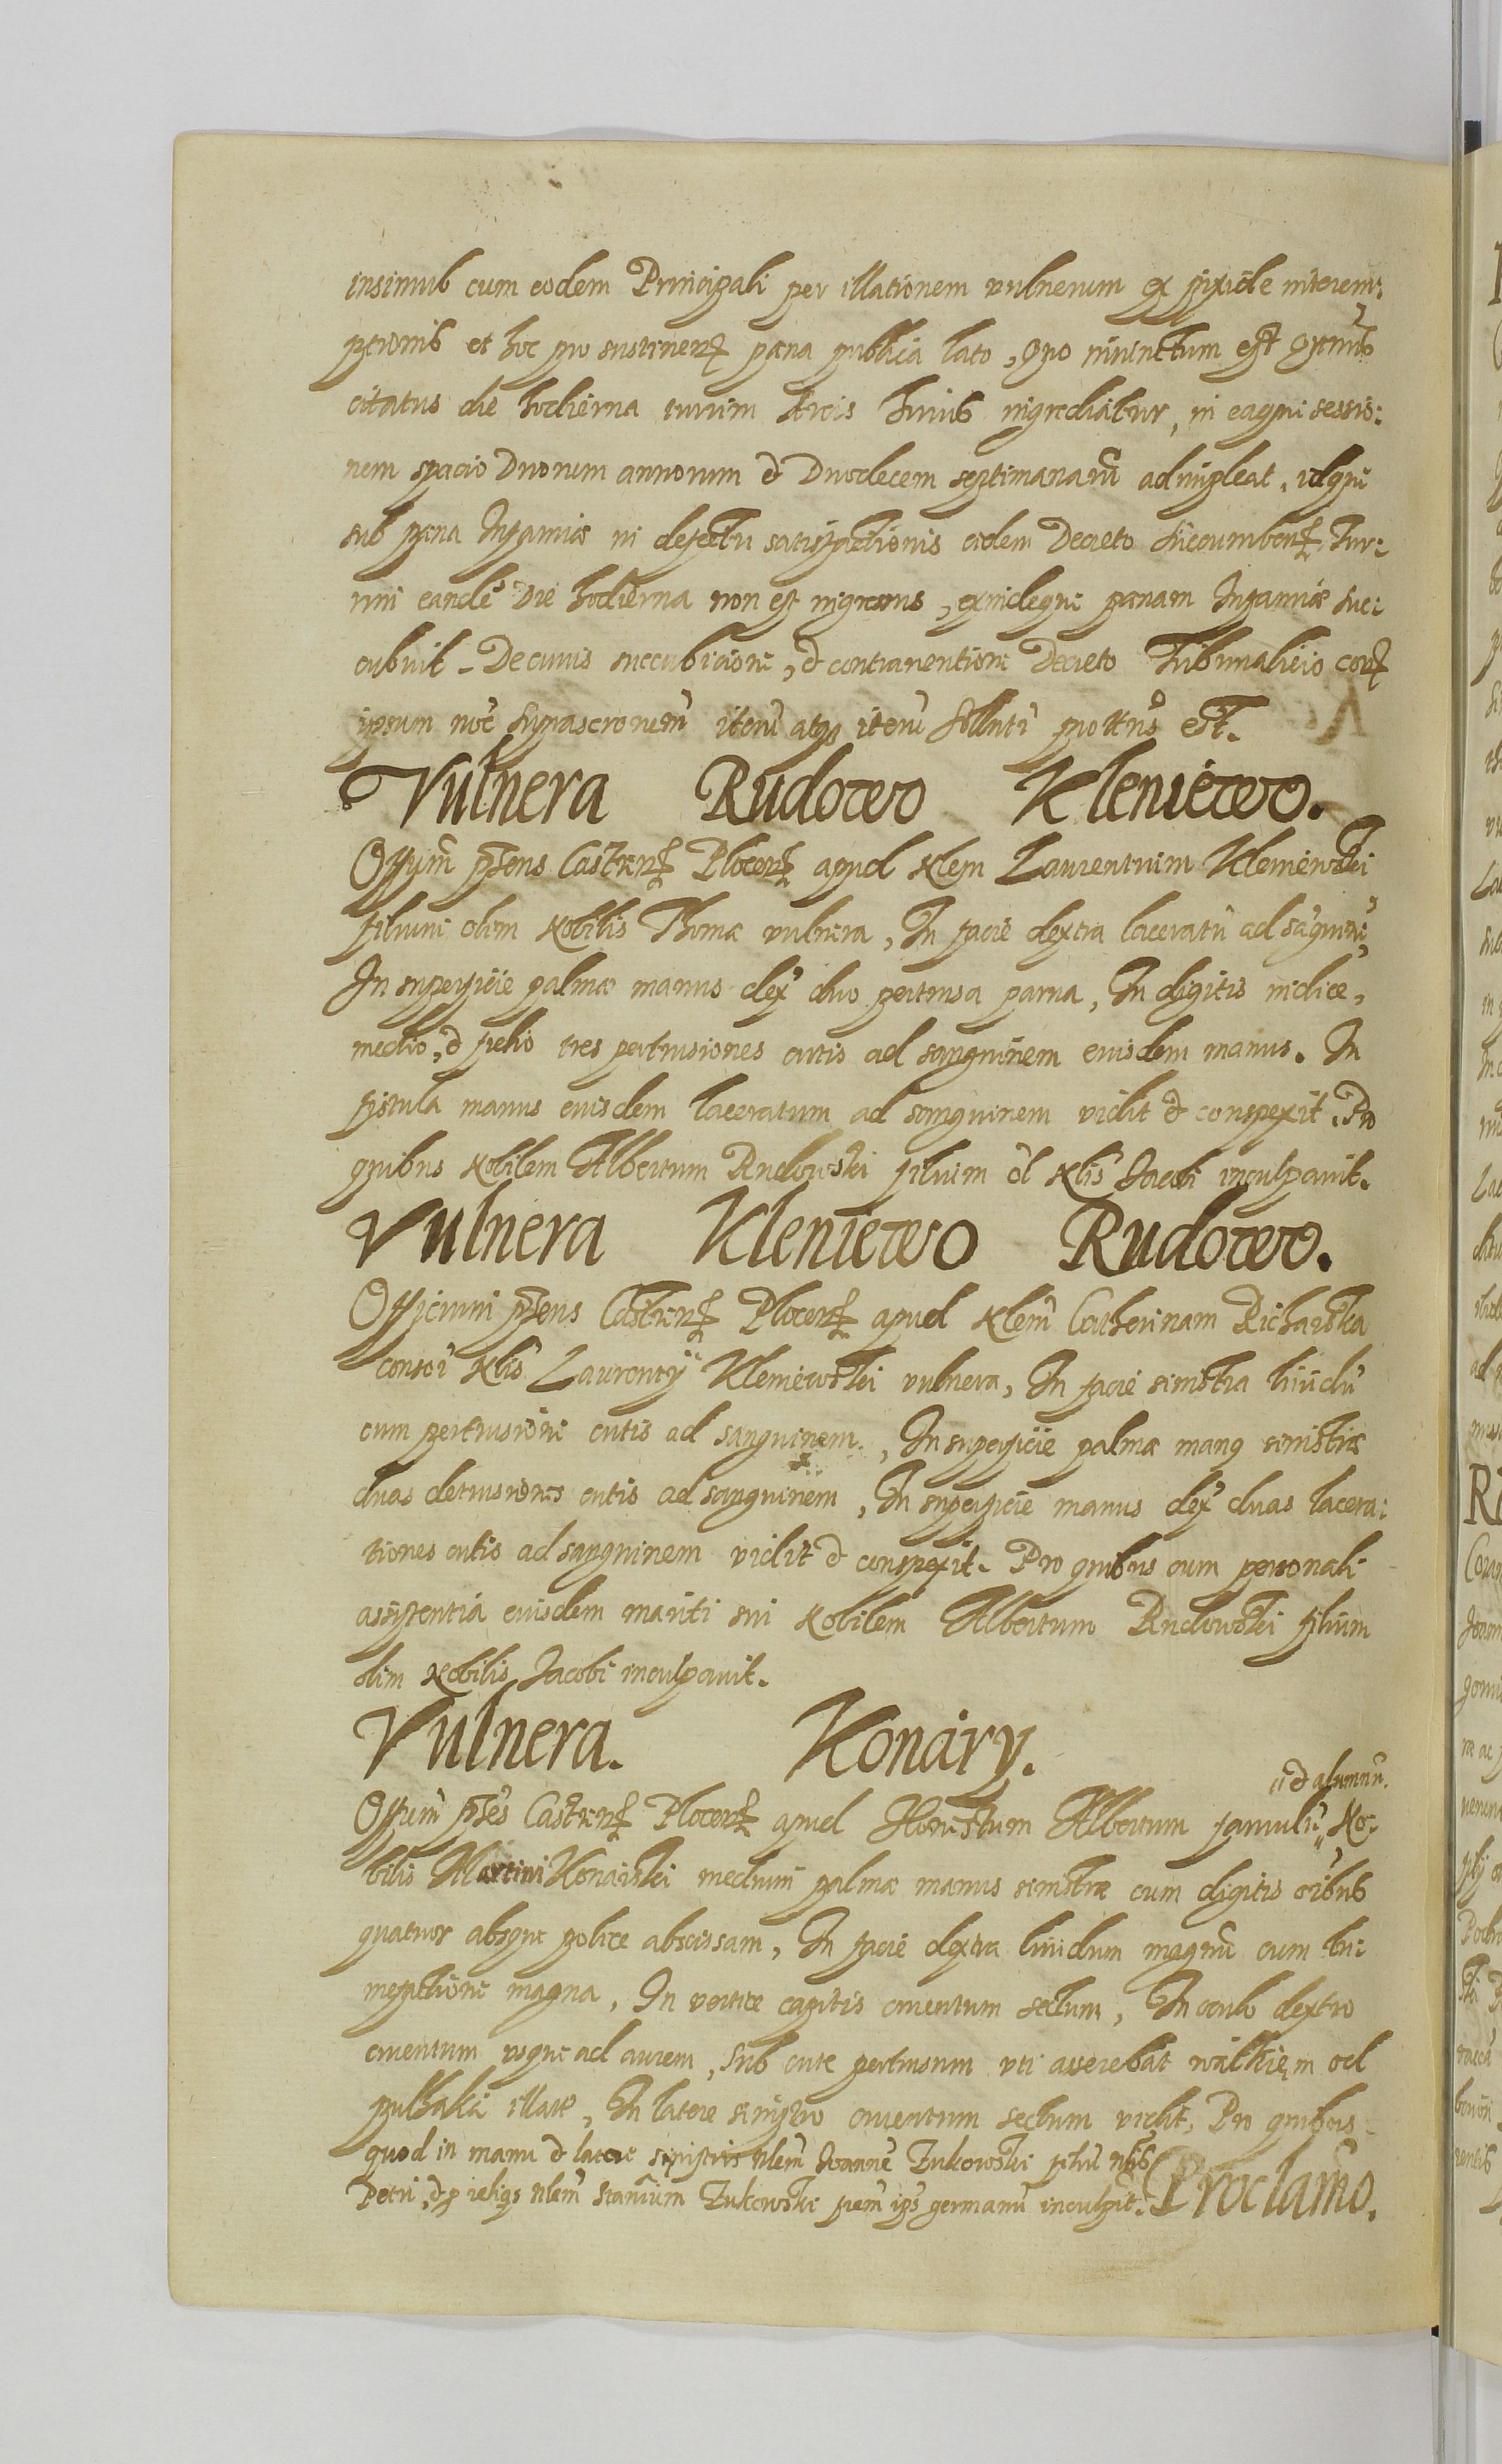 insimul cum eodem Principali per illationem vulnerum ex pixide interem:
ptionis et hoc pro sustinen pæna publica lato, quo iniunctum est
citatus die hodierna turrim Arcis huius ingrediatur, in eaque sessio:
nem spacio Duorum annorum & Duodecem septimanarũ adimpleat, idque
sub pæna Infamiæ in defectu satisfactionis eidem Decreto succumben, Tur:
rim eandẽ Die hodierna non est ingressus, exindeque pænam Infamiæ suc:
cubuit. De cuius succubitione, & contrauentione Decreto Tribunalicio con
ipsum itерũ atqз iterũ est.
Vulnera Rudowo Kleniewo.
Offum pñs Castren Plocen apud Nlem Laurentium Kleniewski
filium olim Nobilis Thomæ vulnera, In facie dextra laceratũ ad sãguinẽ,
In superficie palmæ manus dex duo pertrusa parua, In digitis indice,
medio, & tres pertrusiones cutis ad sanguinem eiusdem manus. In
fistula manus eiusdem laceratum ad sanguinem vidit & conspexit. Pro
quibus Nobilem Albertum Rudowski filium ol Nlis Jacobi inculpauit.
Vulnera Kleniewo Rudowo.
Officium pñs Castren Plocen apud Nlem Catherinam Richarska
consor Nlis Laurentÿ Kleniewski vulnera, In facie sinistra liuidũ
cum pertrusione cutis ad sanguinem, In superficie palmæ manꝰ sinistræ
duas detrusiones cutis ad sanguinem, In superficie manus dex duas lacera:
tiones cutis ad sanguinem vidit & conspexit. Pro quibus cum personali
assistentia eiusdem mariti sui Nobilem Albertum Rudowski filium
olim Nobilis Jacobi inculpauit.
Vulnera. Konary.
& alumnũ.
Offum pñs Castren Plocen apud Honestum Albertum famulũ No:
bilis Martini Konarski medium palmæ manus sinistræ cum digitis oĩbus
quatuor absque police abscissam, In facie dextra liuidum magnũ cum tu:
mefactione magna, In vertice capitis cruentum sectum, In oculo dextro
cruentum usque ad aurem, sub cute pertrusum uti asserebat wilkiem od
pulhaka illatũ, In latere sinistro cruentum sectum vidit, Pro quibus
quod in manu & latere sinistris Nlem Joannẽ Zukowski filiũ Nlis
Petri, & p reliqs Nlem Stanium Zukowski frem ipsꝰ germanũ inculpit. Proclamo.